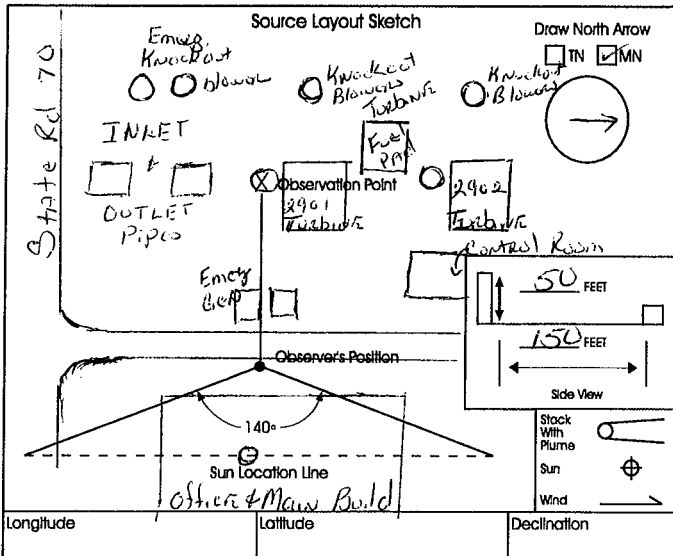 Source Layout Sketch
Draw North Arrow
TN
MN
Emerg.
Knockout
blower
Knockout
Blowers
Turbine
Knockout
Blowers
State Rd 70
INLET
+
OUTLET
Pipco
Fuel
Observation Point
2901
Turbine
2902
Turbine
Control Room
Emerg
Gen
50 FEET
150 FEET
Side View
Observer's Position
140°
Sun Location Line
Office & Main Build
Stack
With
Plume
Sun
Wind
Longitude
Latitude
Declination